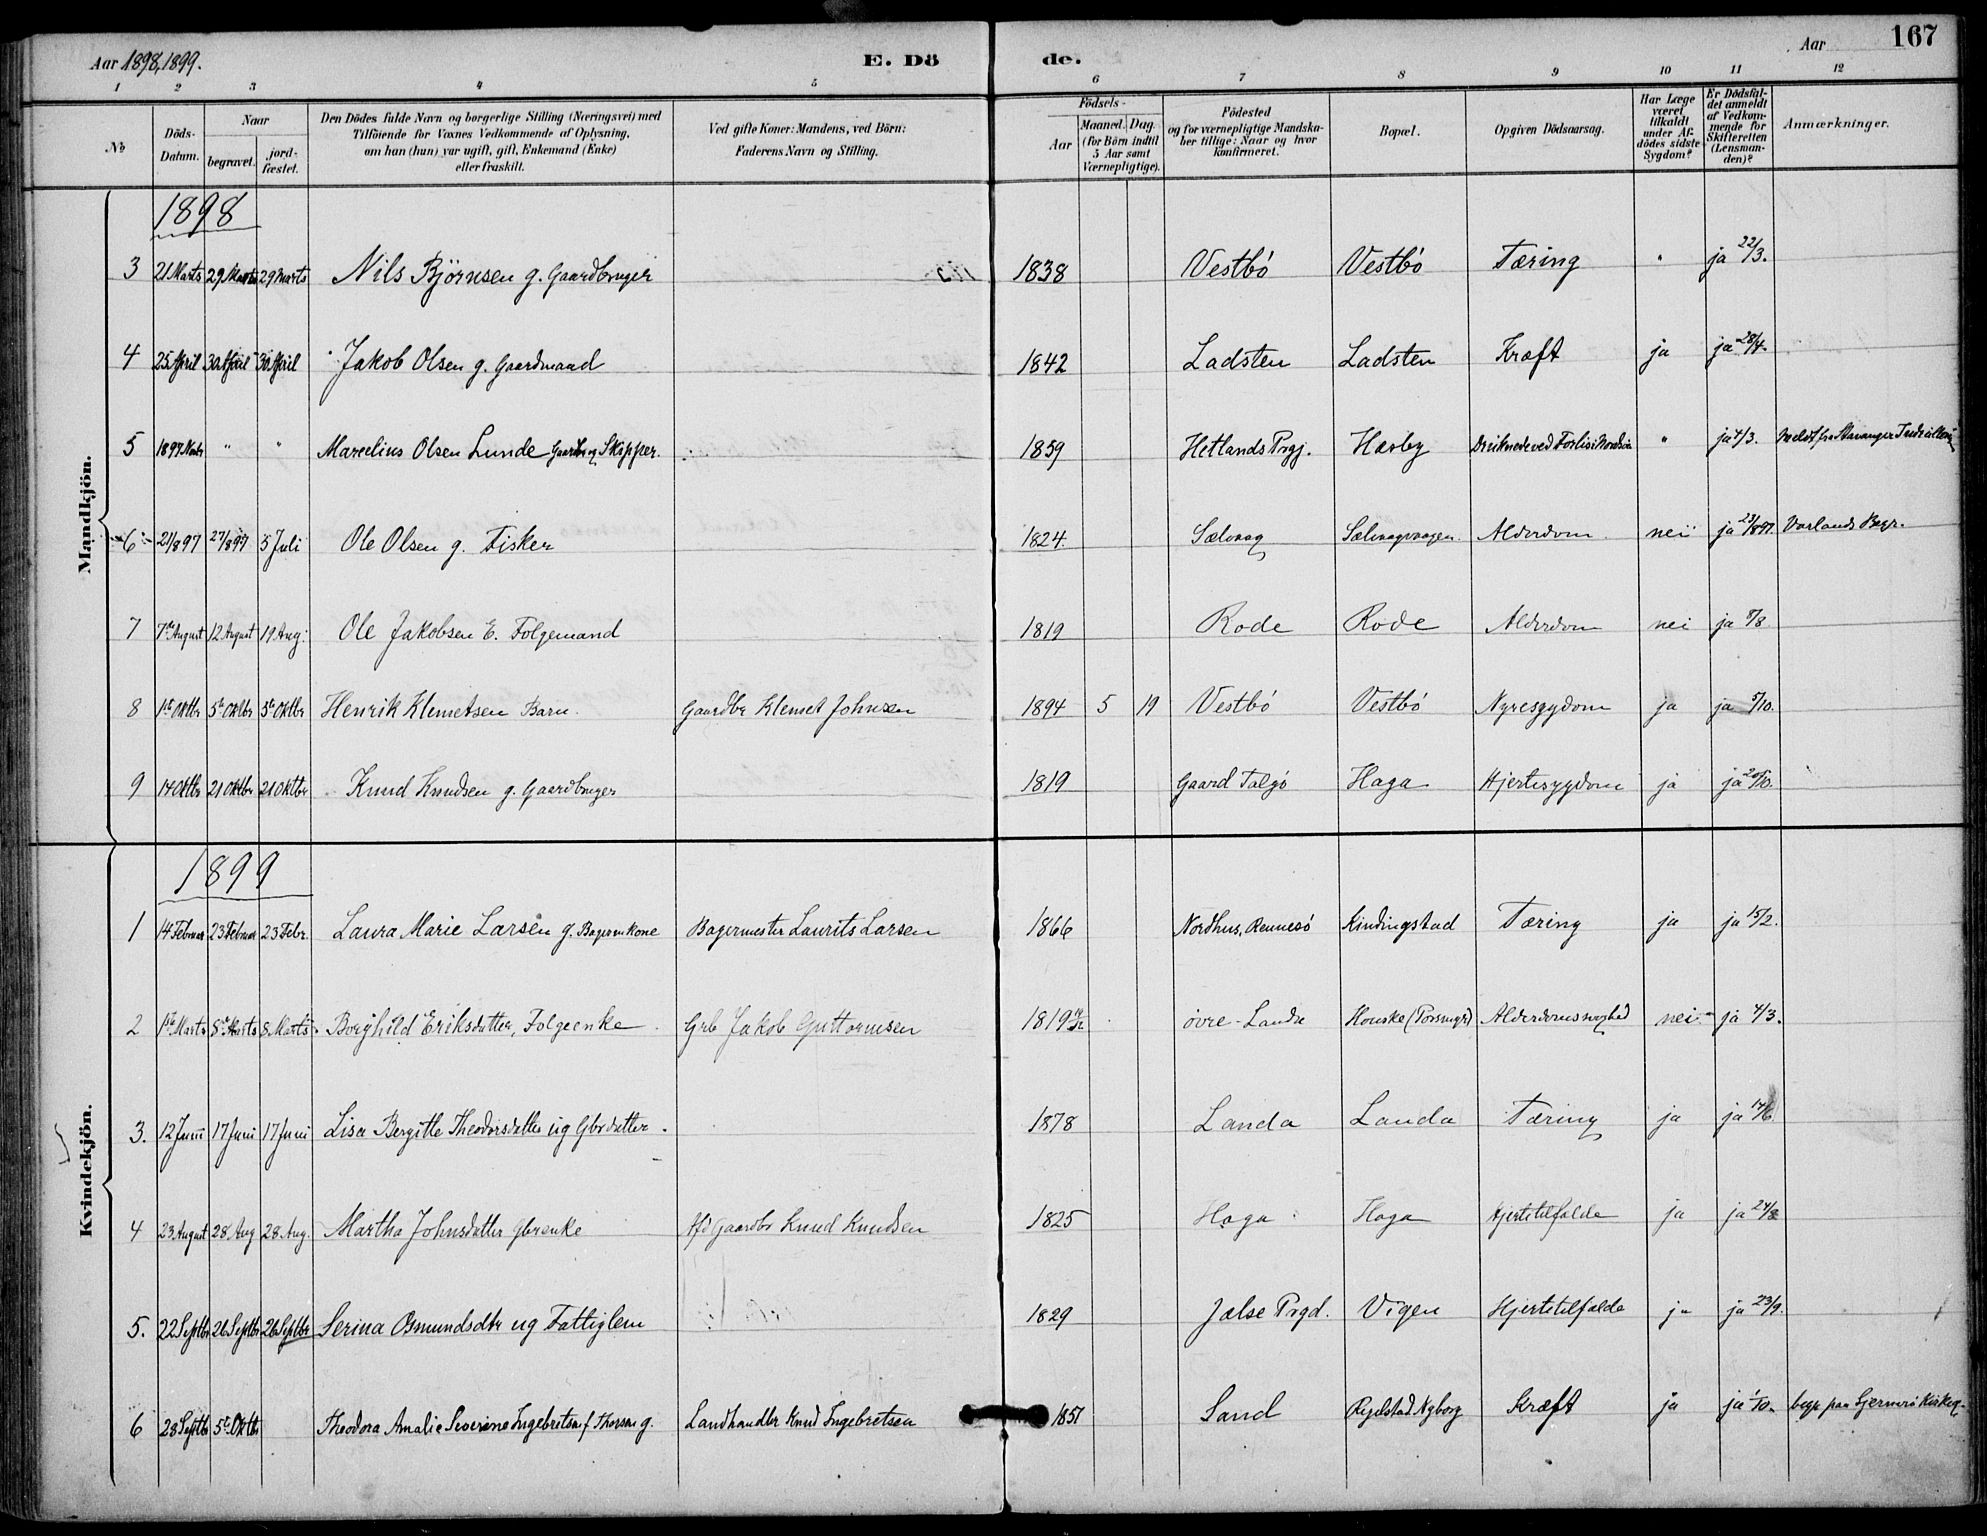 Aar 1898, 1899. E. Dö de. Aar 167
1 2 3 4 5 6 7 8 9 10 11 12
No
Döds-Datum.
Naar
begravet. jord-fæstet.
Den Dödes fulde Navn og borgerlige Stilling (Næringsvei) med
Tilföiende for Voxnes Vedkommende af Oplysning,
om han (hun) var ugift, gift, Enkemand (Enke)
eller fraskilt.
Ved gifte Koner: Mandens, ved Börn:
Faderens Navn og Stilling.
Födsels-
Aar Maaned. Dag.
(for Börn indtil
5 Aar samt
Værnepligtige).
Födested
og for værnepligtige Mandska-
ber tillige: Naar og hvor
konfirmeret.
Bopæl.
Opgiven Dödsaarsag.
Har Læge
været
tilkaldt
under Af-
dödes sidste
Sygdom?
Er Dödsfal-
det anmeldt
af Vedkom-
mende for
Skifteretten
(Lensman-
den)?
Anmærkninger.
Mandkjön.
1898
3 21 Marts 29 Marts 29 Marts Nils Björnsen g. Gaardbruger 1838 Vestbö Vestbö Tæring " ja 22/3.
4 25 April 30 April 30 April Jakob Olsen g. Gaardmand 1842 Ladsten Ladsten Kræft ja ja 28/4.
5 1897 " " Marcelius Olsen Lunde Gaardbr og Skipper. 1859 Hetlands Prgj. Hæsby Druknede ved Forlis i Nordsöen " ja 4/3. meldt fra Stavanger
6 21/8 97 27/8 97 5 Juli Ole Olsen g. Fisker 1824. Sælvaag Sælvaagvaagen. Alderdom. nei ja 23/8 97. Vorlands Begr.
7 7de August 12 August 19 Aug: Ole Jakobsen E. Folgemand 1819 Rode Rode Alderdom nei ja 8/8
8 1ste Oktbr 5te Oktbr 5te Oktbr Henrik Klemetsen Barn. Gaardbr Klemet Johnsen 1894 5 19 Vestbö Vestbö Nyresygdom ja ja 5/10.
9 14 Oktbr 21 Oktbr 21 Oktbr Knud Knudsen g. Gaardbruger 1819 Gaard Talgö Haga Hjertesygdom ja ja 20/10.
Kvindekjön.
1899
1 14 Februar 23 Februar 23 Febr. Laura Marie Larsen g. Bagerenkone Bagermester Laurits Larsen 1866 Nordhus, Rennesö Kindingstad Tæring ja ja 15/2.
2 1ste Marts 5te Marts 8 Marts Borghild Eriksdatter, Folgeenke Grb Jakob Guttormsen 1819 övre-Landa Houske Alderdomssvaghed nei ja 4/3.
3. 12 Juni 17 Juni 17 Juni Lisa Bergitte Theodorsdatter ug Gbrdatter. 1878 Landa Landa Tæring ja ja 14/6.
4 23 August 28 Aug 28 Aug. Martha Johnsdatter gbrenke Afd Gaardbr Knud Knudsen 1825 Haga Haga Hjertetilfælde ja ja 24/8
5. 22 Septbr 26 Septbr 26 Septbr Serina Osmundsdtr ug Fattiglem 1829 Jælse Prgd. Vigen Hjertetilfælde ja ja 23/9.
6 28 Septbr 5te Oktbr Theodora Amalie Severine Ingebretsen f. Thorsen g. Landhandler Knud Ingebretsen 1857 Sand Nyborg Kræft ja ja 1/10. begr. paa Sjernerö Kirkeg.